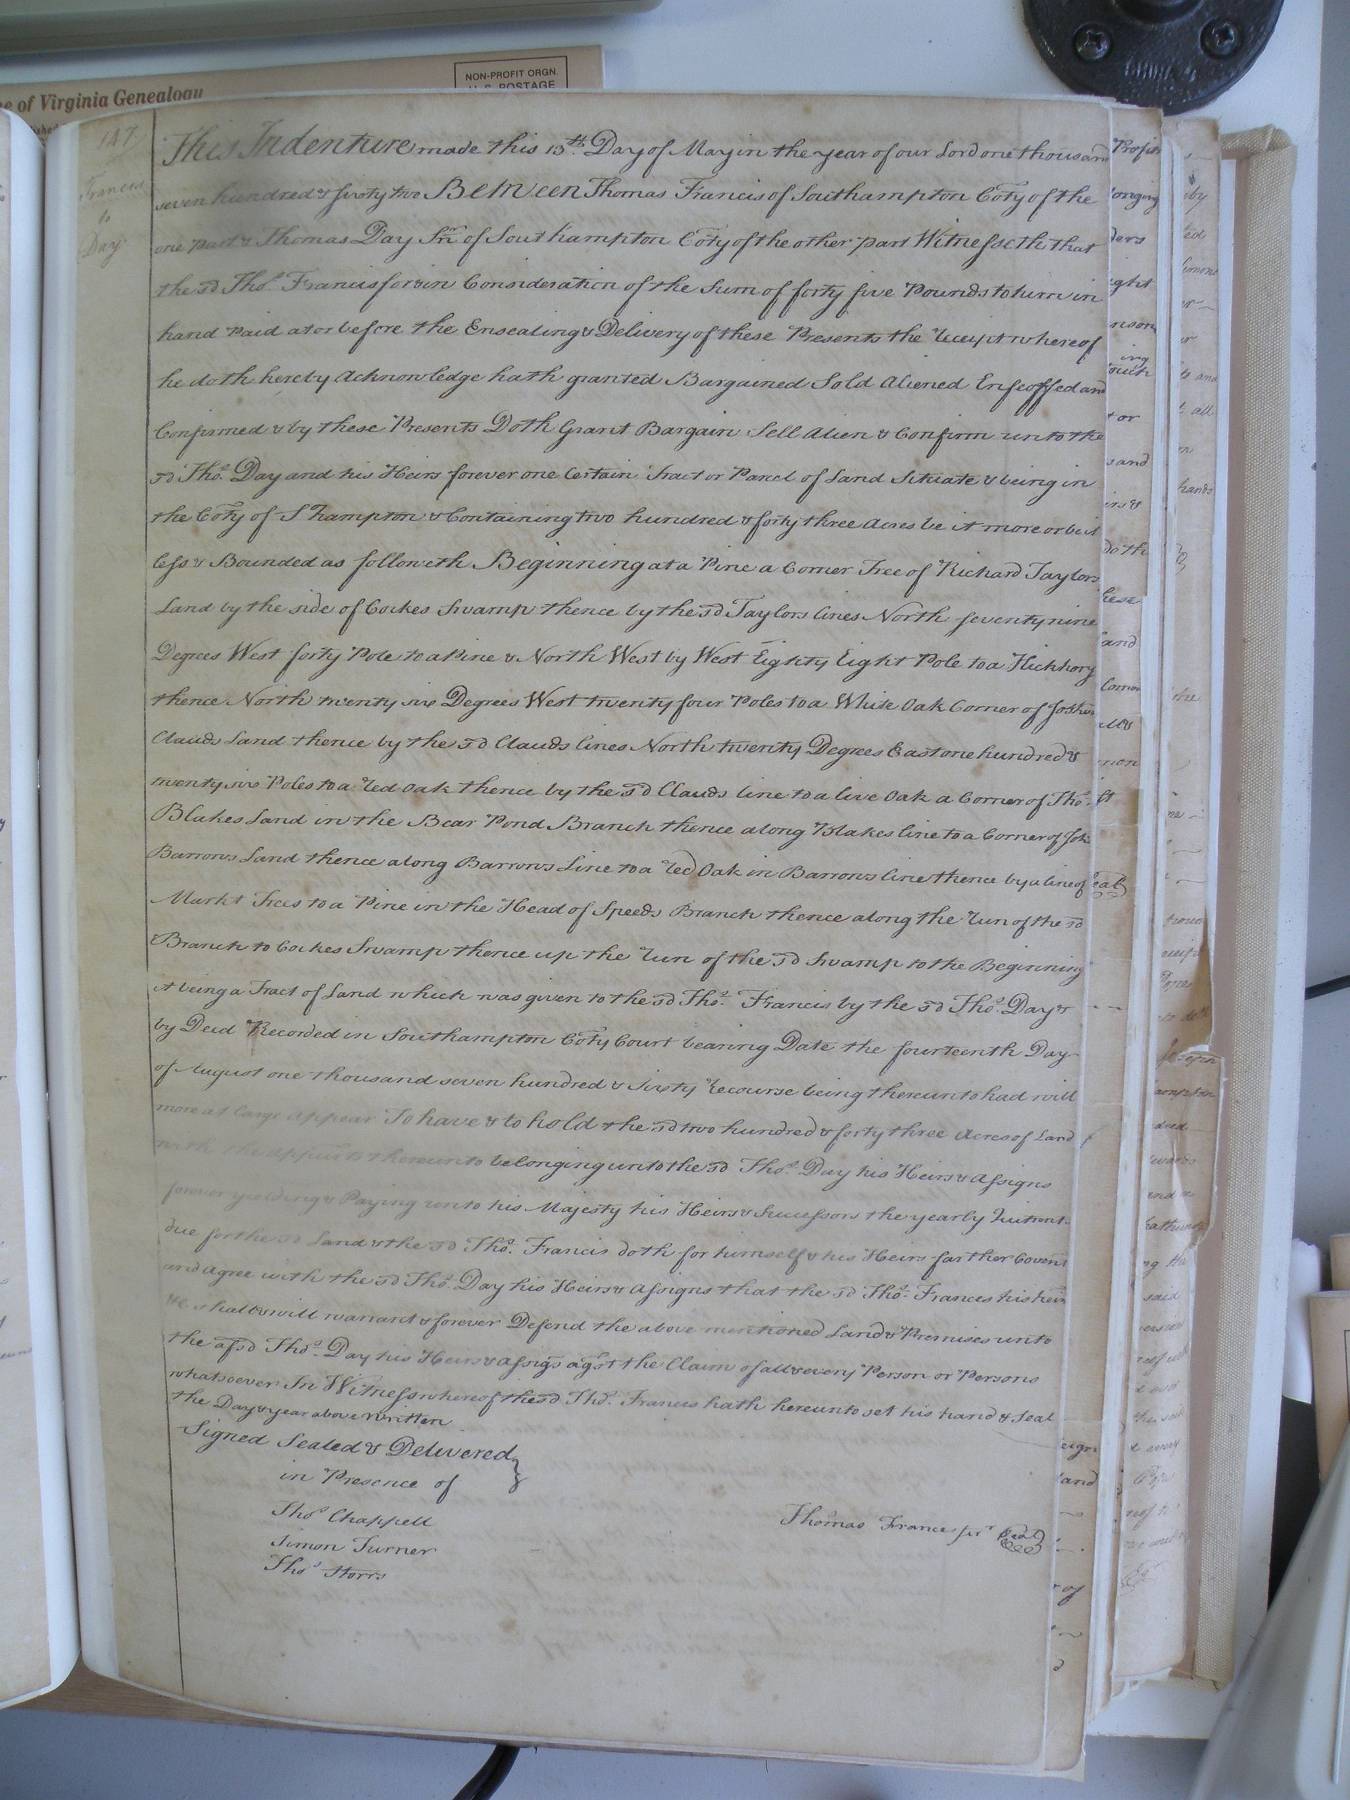 NON-PROFIT ORGN.
U.S. POSTAGE
e of Virginia Genealogy
147
Francis
to
Day
This Indenture made this 13th Day of May in the year of our Lord one thousand
seven hundred & sixty two Between Thomas Francis of Southampton Coty of the
one part & Thomas Day Snr of Southampton Coty of the other part Witnesseth that
the sd Thos. Francis for & in Consideration of the Sum of forty five Pounds to him in
hand Paid at or before the Ensealing & Delivery of these Presents the Receipt whereof
he doth hereby Acknowledge hath granted Bargained Sold Aliened Enfeoffed and
Confirmed & by these Presents Doth Grant Bargain Sell Alien & Confirm unto the
sd Thos. Day and his Heirs forever one Certain Tract or Parcel of Land Situate & being in
the Coty of S hampton & Containing two hundred & forty three Acres be it more or be it
less & Bounded as followeth Beginning at a Pine a Corner Tree of Richard Taylors
Land by the side of Cockes Swamp thence by the sd Taylors lines North seventy nine
Degrees West forty Pole to a Pine & North West by West Eighty Eight Pole to a Hickhory
thence North twenty six Degrees West twenty four Poles to a White Oak Corner of Joshua
Clauds Land thence by the sd Clauds lines North twenty Degrees East one hundred &
twenty six Poles to a Red Oak thence by the sd Clauds line to a live Oak a Corner of Thos.
Blakes Land in the Bear Pond Branch thence along Blakes line to a Corner of Joh
Barrows Land thence along Barrows Line to a Red Oak in Barrows line thence by a line of
Markt Trees to a Pine in the Head of Speeds Branch thence along the Run of the sd
Branch to Cockes Swamp thence up the Run of the sd Swamp to the Beginning
it being a Tract of Land which was given to the sd Thos. Francis by the sd Thos. Day &
by Deed Recorded in Southampton Coty Court bearing Date the fourteenth Day
of August one thousand seven hundred & Sixty Recourse being thereunto had will
more at Large Appear To have & to hold & the sd two hundred & forty three Acres of Land
with the appurts thereunto belonging unto the sd Thos. Day his Heirs & Assigns
forever yielding & Paying unto his Majesty his Heirs & Successors the yearly Quitrents
due for the sd Land & the sd Thos. Francis doth for himself & his Heirs farther Covent
and agree with the sd Thos. Day his Heirs & Assigns that the sd Thos. Frances his heirs
&c shall & will warrant & forever Defend the above mentioned Land & Premises unto
the afsd Thos. Day his Heirs & Assigs agst the Claim of all & every Person or Persons
whatsoever In Witness whereof the sd Thos. Francis hath hereunto set his hand & Seal
the Day & year above written
Signed Sealed & Delivered
in Presence of
Thos Chappell
Simon Turner
Thos Thomas Frances senr Seal